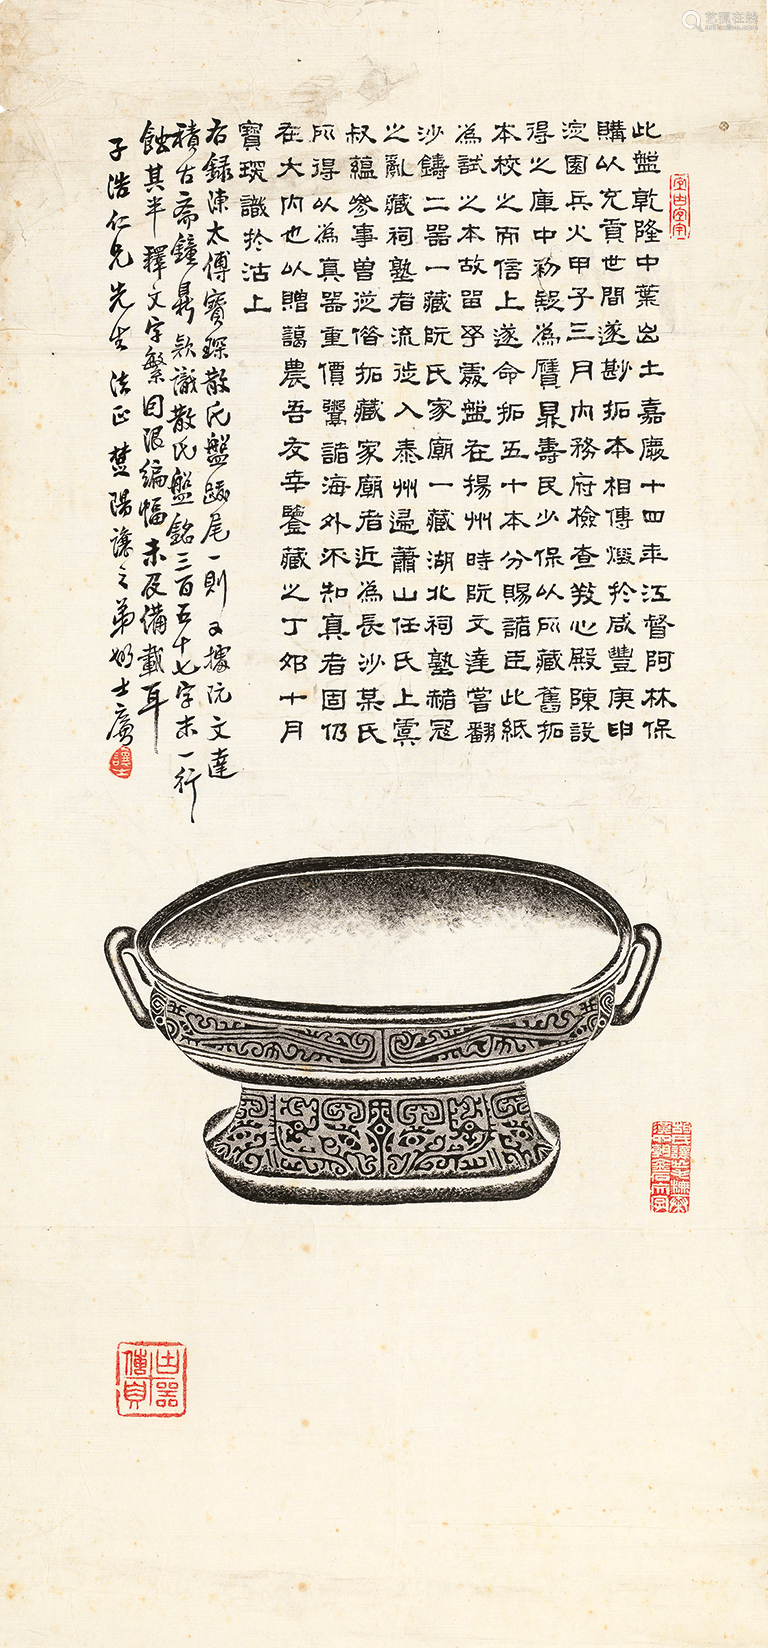 此盤乾隆中葉出土嘉慶十四年江督阿林保
購以充貢世間遂尠拓本相傳燬於咸豐庚申
淀園兵火甲子三月內務府檢查養心殿陳設
得之庫中初疑為贗鼎壽民少保以所藏舊拓
本校之而信上遂命拓五十本分賜諸臣此紙
為試之本故留乎處盤在揚州時阮文達嘗翻
沙鑄二器一藏阮氏家廟一藏湖北祠塾赭冠
之亂藏祠塾者流徙入泰州歸蕭山任氏上虞
叔蘊參事曾從俗拓藏家廟者近為長沙某氏
所得以為真器重價鬻諸海外不知真者固仍
在大內也以贈藹農吾友幸鑒藏之丁卯十月
寶琛識於沽上
右錄陳太傅寶琛散氏盤跋尾一則又據阮文達
積古斋鐘鼎款識散氏盤銘三百五十七字末一行
蝕其半釋文字繁因限編幅未及備載耳
子浩仁兄先生法正楚陽讓之弟胡士廣
讓士
古器
傳真